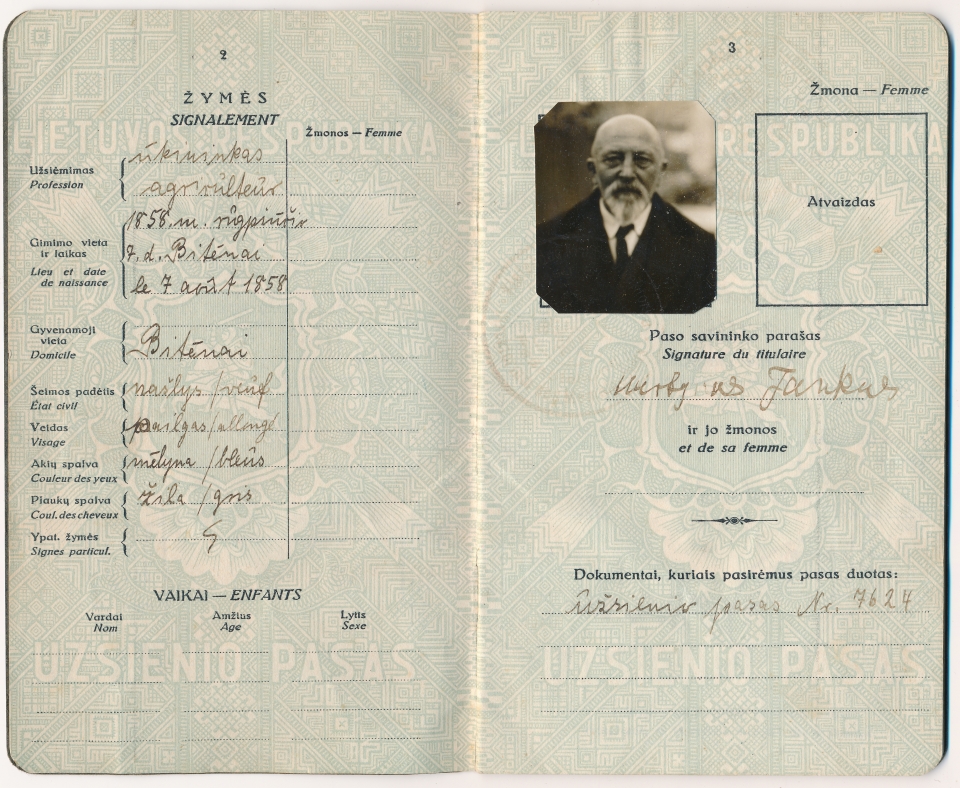 2
ŽYMĖS
SIGNALEMENT
Žmonos — Femme
Užsiėmimas
Profession
ūkininkas
agriculteur
Gimimo vieta
ir laikas
Lieu et date
de naissance
1858 m. rugpiučio
7 d. Bitėnai
le 7 août 1858
Gyvenamoji
vieta
Domicile
Bitėnai
Šeimos padėtis
État civil
našlys / veuf
Veidas
Visage
pailgas / allongé
Akių spalva
Couleur des yeux
mėlyna / bleus
Plaukų spalva
Coul. des cheveux
žila / gris
Ypat. žymės
Signes particul.
VAIKAI — ENFANTS
Vardai
Nom
Amžius
Age
Lytis
Sexe
LIETUVOS RESPUBLIKA
UŽSIENIO PASAS
3
Žmona — Femme
Atvaizdas
Paso savininko parašas
Signature du titulaire
Martynas Jankus
ir jo žmonos
et de sa femme
Dokumentai, kuriais pasirėmus pasas duotas:
Užsienio pasas Nr. 7624
RESPUBLIKA
UŽSIENIO PASAS